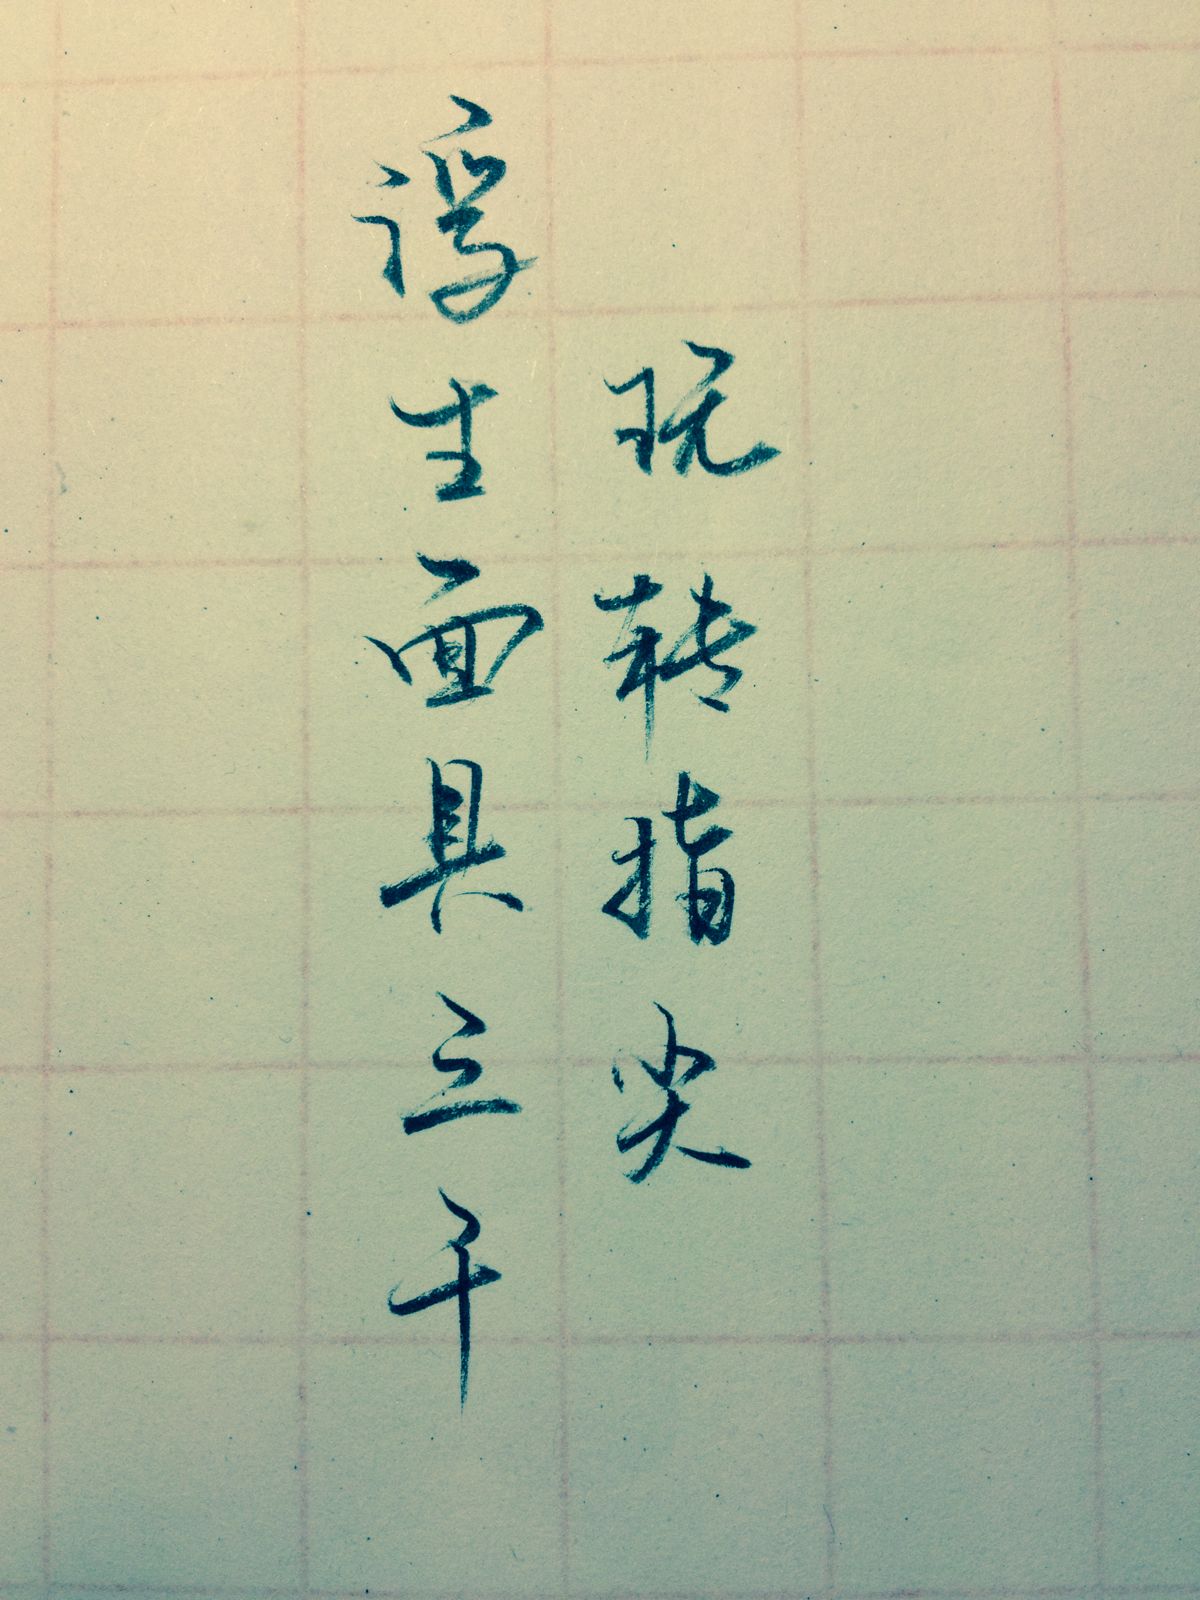 玩转指尖
浮生面具三千